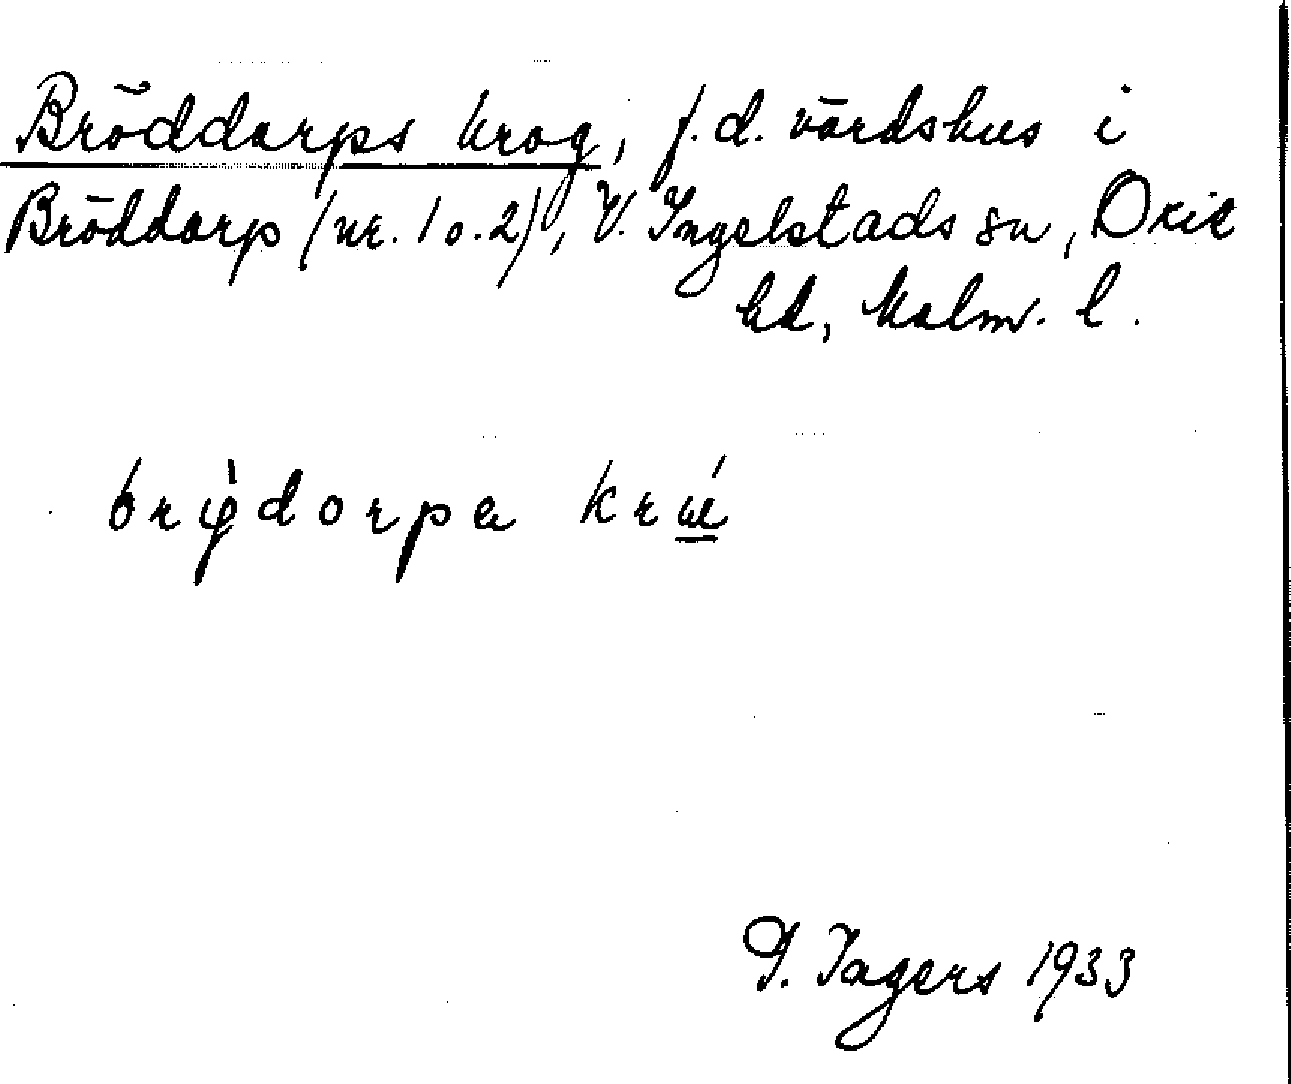 Bröddarps krog, f.d. värdshus i
Bröddarp (nr. 1 o. 2), V. Ingelstads sn, Oxie
hd, Malm. l.
brø̀dorpa
Ingers 1933